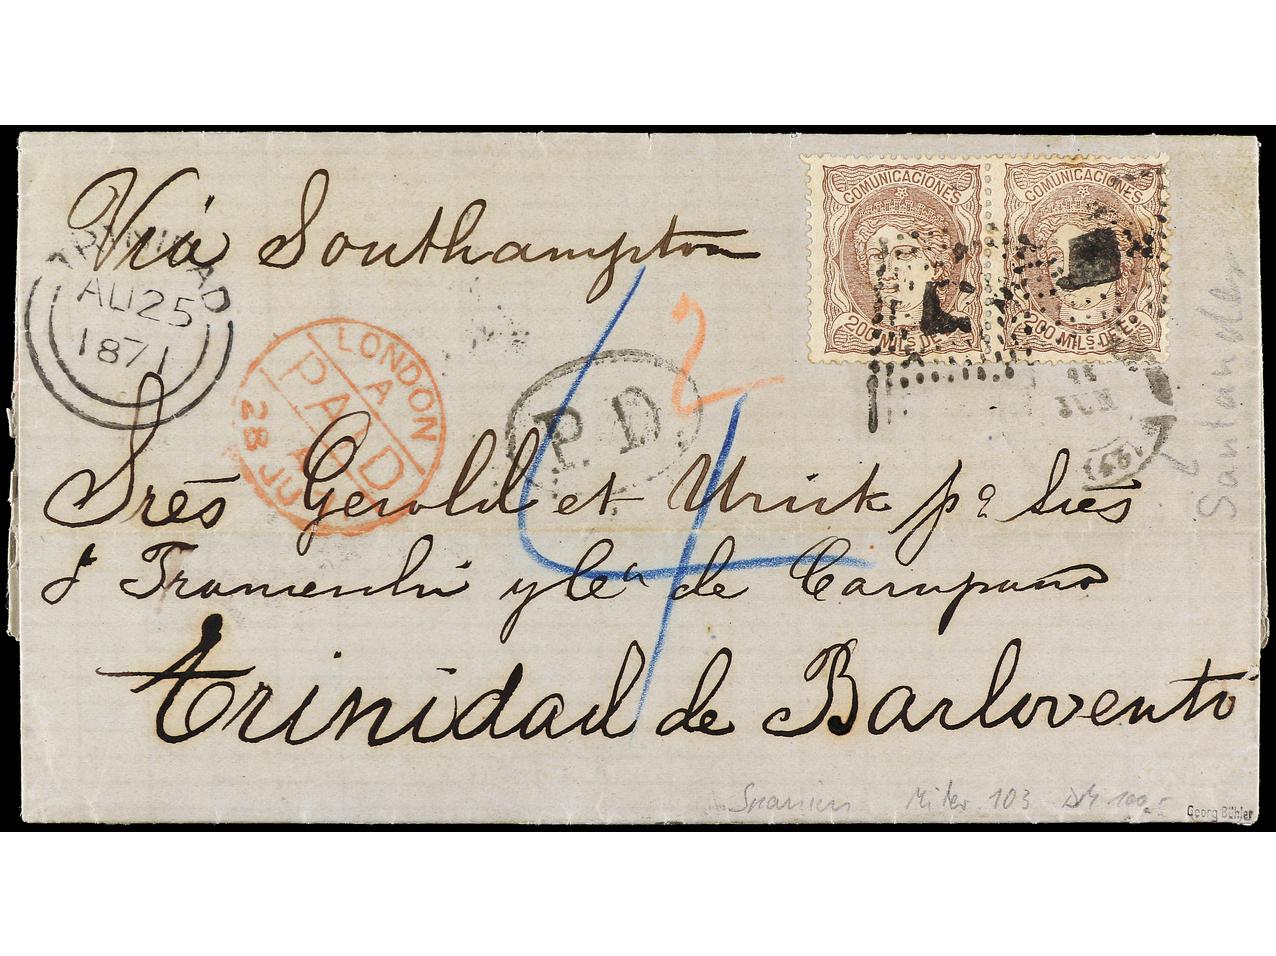 Via Southampton
COMUNICACIONES
200 MILS. DE E.
COMUNICACIONES
200 MILS. DE E.
TRINIDAD
AU 25
1871
LONDON
A
PAID
28 JU
2
P.D.
4
JUN
Santander
Srēs Gerold et Urick pª Srēs
de Cº de Campano
Trinidad de Barlovento
Spanien Mi Nr. 103 DM 100,-
Georg Bühler